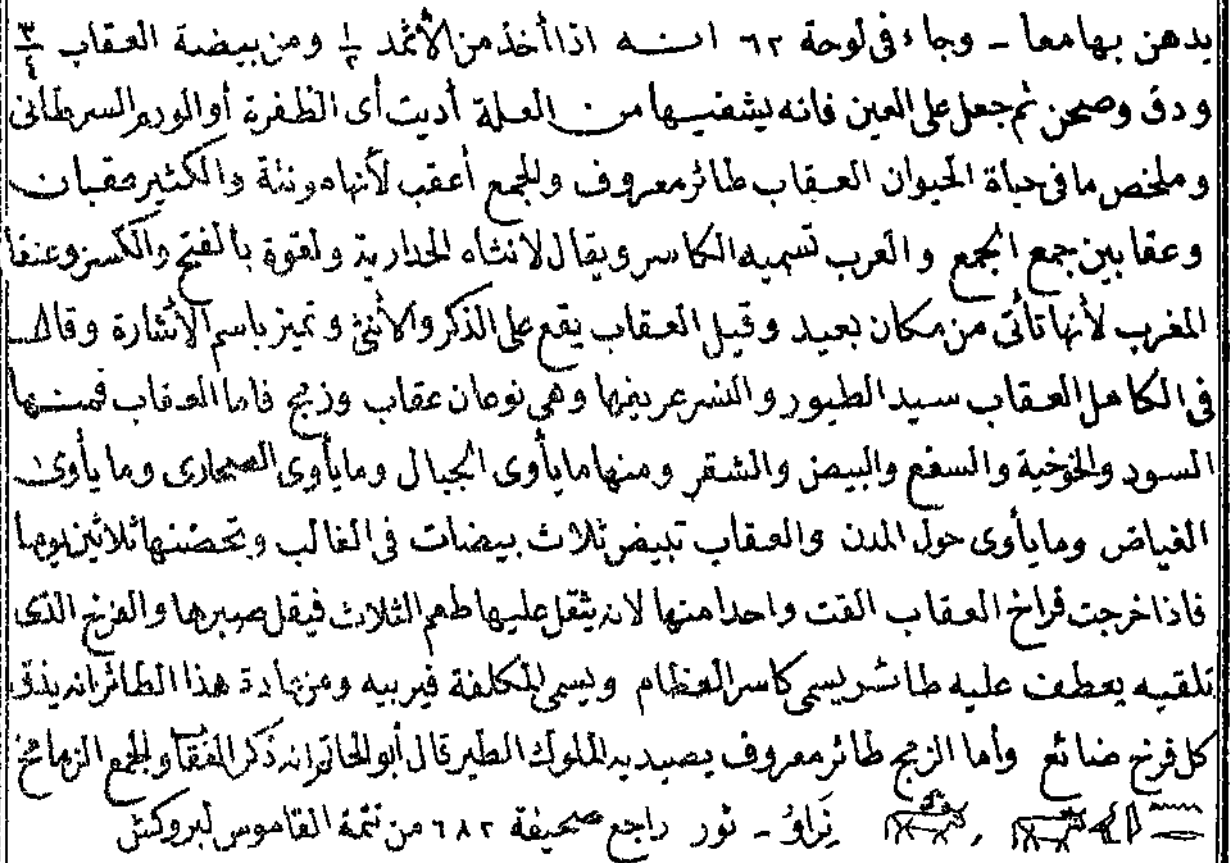 يدهن بها معا ـ وجاء فى لوحة ٦٢ انه اذا أخذ من الأثمد ١/٢ ومن بيضة العقاب ٣/٤
ودق وصحن ثم جعل على العين فانه يشفيها من العلة أديت أى الظفرة أو الورم السرطانى
وملخص ما فى حياة الحيوان العقاب طائر معروف والجمع أعقب لأنها مؤنثة والكثير عقبان
وعقابين جمع الجمع والعرب تسميه الكاسر ويقال لانثاه الخدارية ولقوة بالفتح والكسر وعنقا
المغرب لأنها تأتى من مكان بعيد وقيل العقاب يقع على الذكر والأنثى وتميز باسم الاشارة وقال
فى الكامل العقاب سيد الطيور والنسر عريفها وهى نوعان عقاب وزمج فاما العقاب فمنها
السود والخوخية والسفع والبيض والشقر ومنها مايأوى الجبال ومايأوى الصحارى ومايأوى
الغياض ومايأوى حول المدن والعقاب تبيض ثلاث بيضات فى الغالب وتحضنها ثلاثين يوما
فاذا خرجت فراخ العقاب القت واحدا منها لانه يثقل عليها طعم الثلاث فيقل صبرها والفرخ الذى
تلقيه يعطف عليه طائر يسمى كاسر العظام ويسمى المكلفة فيربيه ومن عادة هذا الطائر انه يذق
كل فرخ ضائع وأما الزمج طائر معروف يصيد به الملوك الطير قال أبو الحاتم انه ذكر العقاب والجمع الزمامج
نراؤ ـ ثور راجع صحيفة ٦٨٢ من تتمة القاموس لبروكش